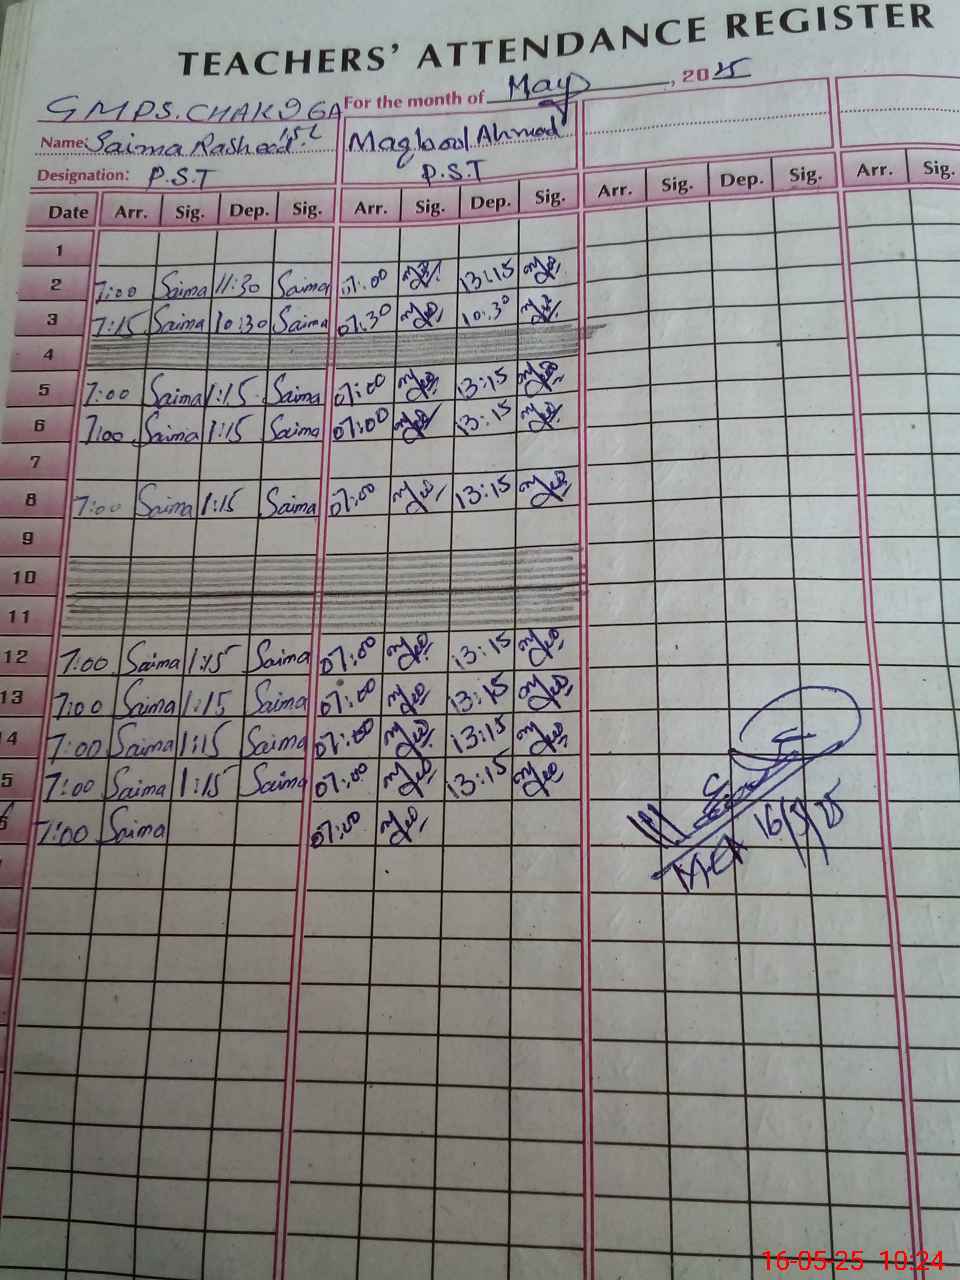 TEACHERS' ATTENDANCE REGISTER
GMPS. CHAK 96A For the month of May, 2025
Name: Saima Rasheed Maqbool Ahmad
15.L
Designation: P.S.T P.S.T
Date Arr. Sig. Dep. Sig. Arr. Sig. Dep. Sig. Arr. Sig. Dep. Sig. Arr. Sig.
1
2 7:00 Saima 11:30 Saima 07:00 13:15
3 7:15 Saima 10:30 Saima 07:30 10:30
4
5 7:00 Saima 1:15 Saima 07:00 13:15
6 7:00 Saima 1:15 Saima 07:00 13:15
7
8 7:00 Saima 1:15 Saima 07:00 13:15
9
10
11
12 7:00 Saima 1:15 Saima 07:00 13:15
13 7:00 Saima 1:15 Saima 07:00 13:15
4 7:00 Saima 1:15 Saima 07:00 13:15
5 7:00 Saima 1:15 Saima 07:00 13:15
6 7:00 Saima 07:00
MEA 16/5/25
16-05-25 10:24